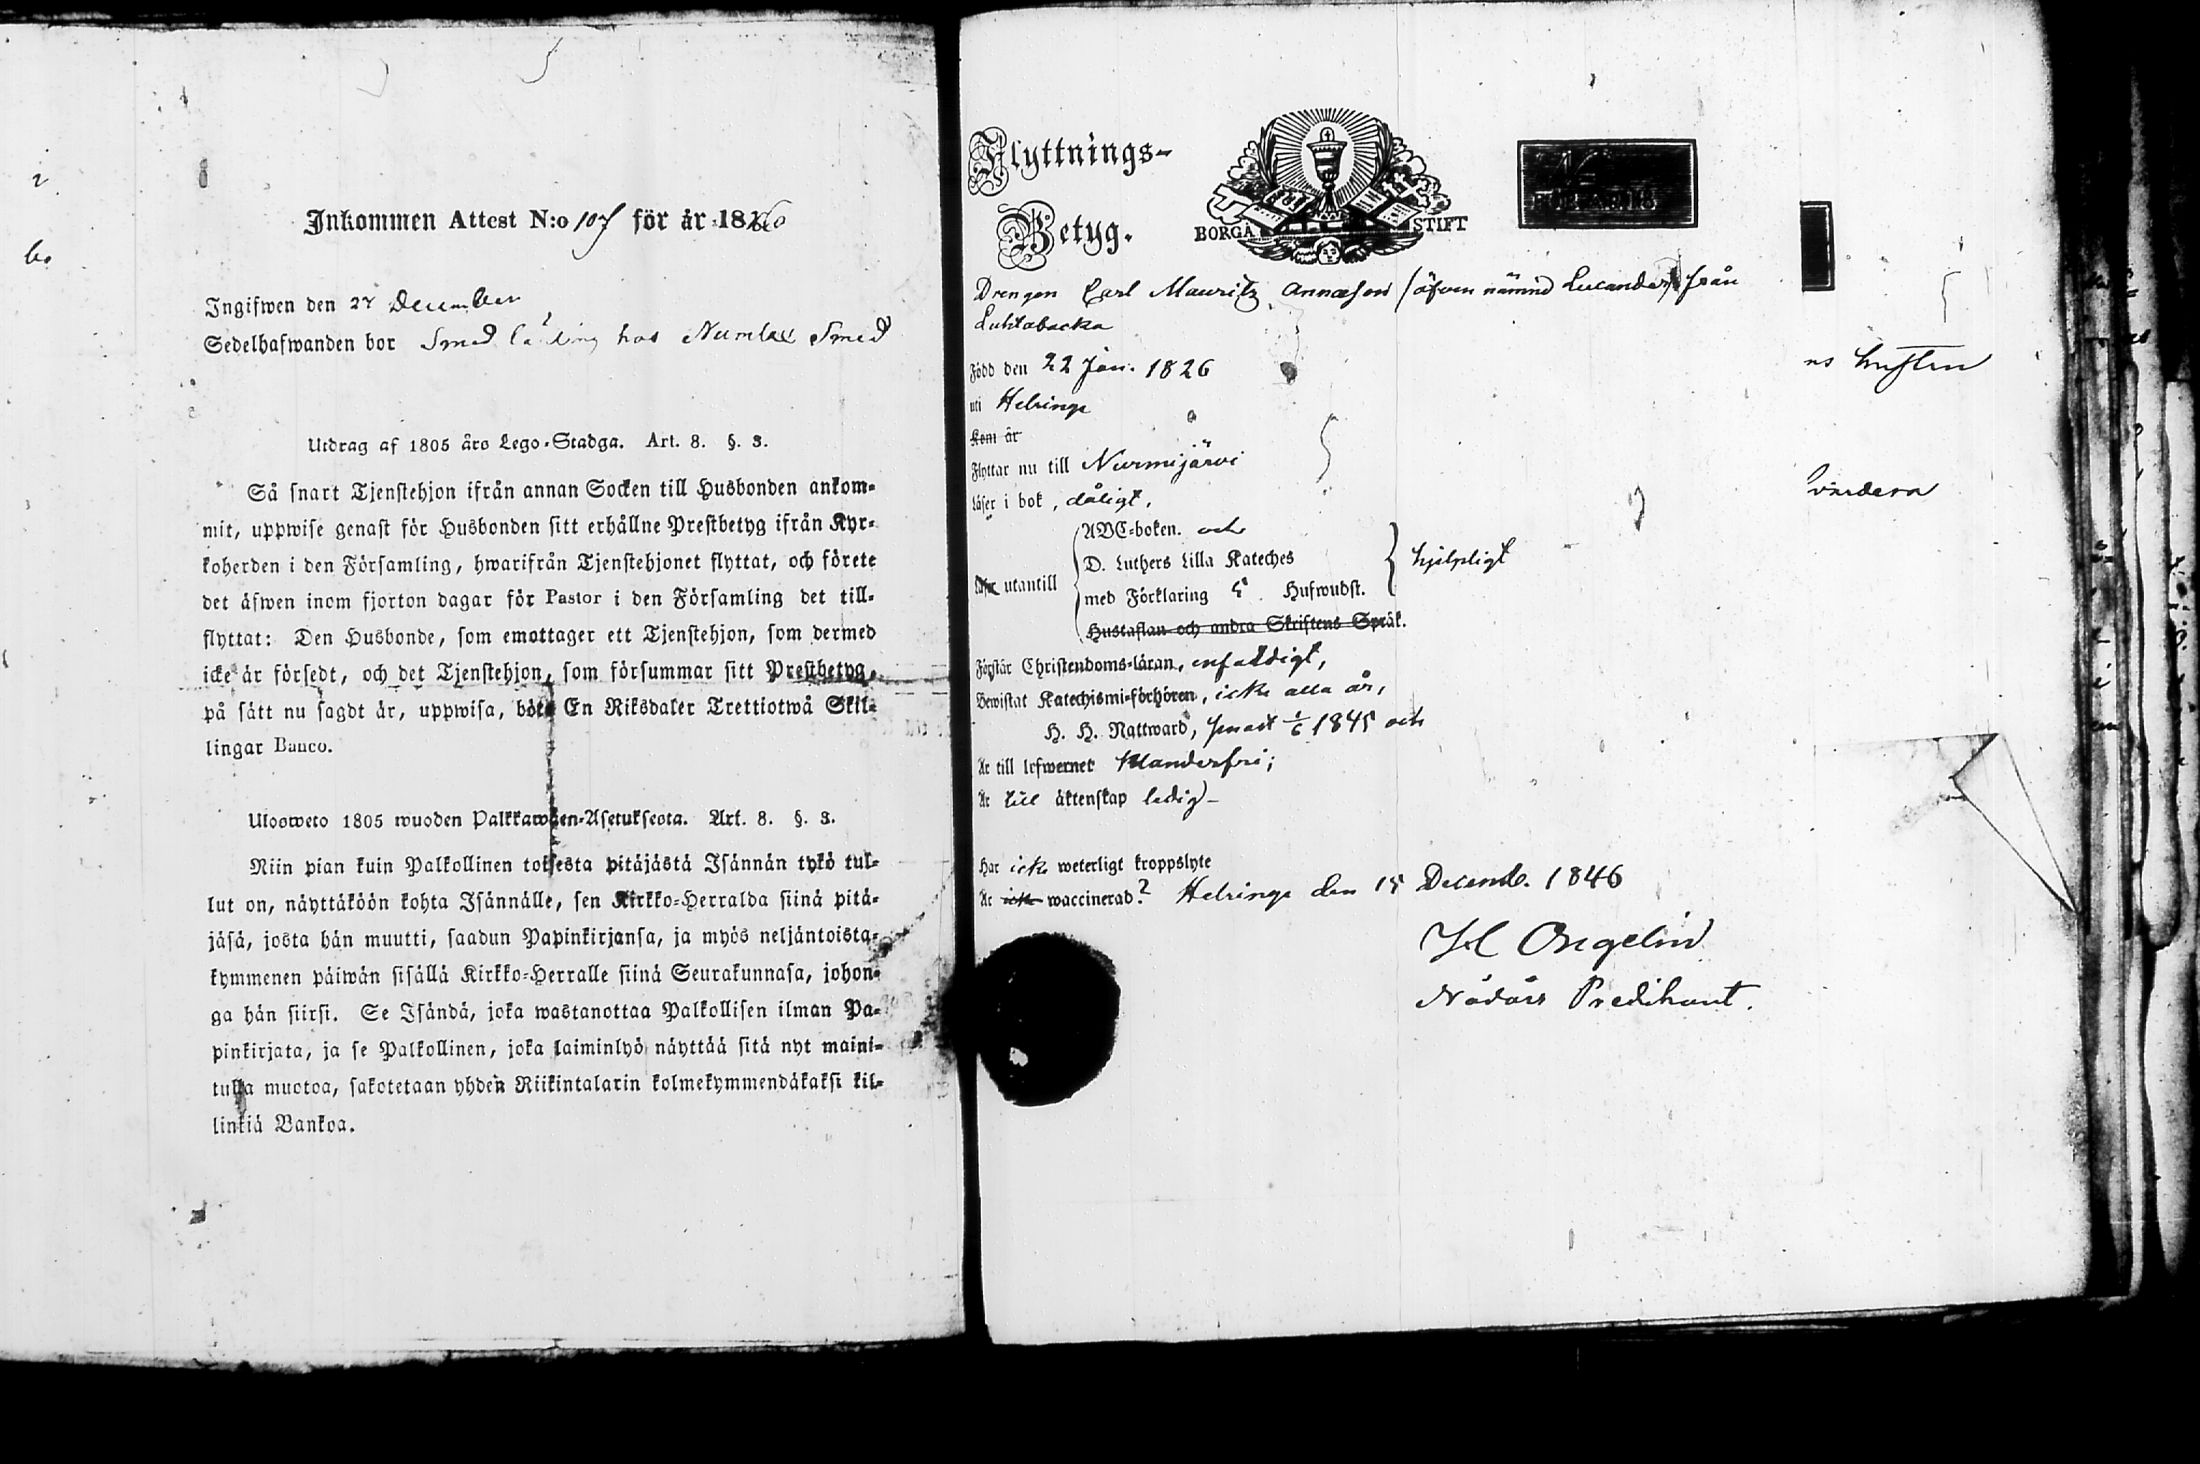 Inkommen Attest N:o 107 för år 1846
Ingifwen den 27 December
Sedelhafwanden bor Smed lärling hos Numlax Smed
Utdrag af 1805 års Lego-Stadga. Art. 8. §. 3.
Så snart Tjenstehjon ifrån annan Socken till Husbonden ankom-
mit, uppwise genast för Husbonden sitt erhållne Prestbetyg ifrån Kyr-
koherden i den Församling, hwarifrån Tjenstehjonet flyttat, och förete
det äfwen inom fjorton dagar för Pastor i den Församling det till-
flyttat: Den Husbonde, som emottager ett Tjenstehjon, som dermed
icke är försedt, och det Tjenstehjon, som försummar sitt Prestbetyg,
på sätt nu sagdt är, uppwisa, böte En Riksdaler Trettiotwå Skil-
lingar Banco.
Ulosweto 1805 wuoden Palkkawäen-Asetuksesta. Art. 8. §. 3.
Niin pian kuin Palkollinen toisesta pitäjästä Isännän tykö tul-
lut on, näyttäköön kohta Isännälle, sen Kirkko-Herralda siinä pitä-
jäsä, josta hän muutti, saadun Papinkirjansa, ja myös neljäntoista-
kymmenen päiwän sisällä Kirkko-Herralle siinä Seurakunnasa, johon-
ga hän siirsi. Se Isändä, joka wastanottaa Palkollisen ilman Pa-
pinkirjata, ja se Palkollinen, joka laiminlyö näyttää sitä nyt maini-
tulla muotoa, sakotetaan yhden Riikintalarin kolmekymmendäkaksi kil-
linkiä Bankoa.
Flyttnings-
Betyg.
BORGÅ STIFT
Drengen Carl Mauritz Annæson (äfven nämnd Lucander) från
Luhtabacka
Född den 22 Jan. 1826
uti Helsinge
Kom år
Flyttar nu till Nurmijärvi
Läser i bok, dåligt,
ABC-boken. och
D. Luthers Lilla Kateches
hjelpligt
Läser utantill
med Förklaring 5 Hufwudst.
Hustaflan och andra Skriftens Språk.
Förstår Christendoms-läran, enfaldigt,
Bewistat Katechismi-förhören, icke alla år,
H. H. Nattward, senast 1/6 1845 och
Är till lefwernet klanderfri;
Är till äktenskap ledig -
Har icke weterligt kroppslyte
Är icke waccinerad? Helsinge den 15 Decemb. 1846
Ongelin
Nådårs Predikant.